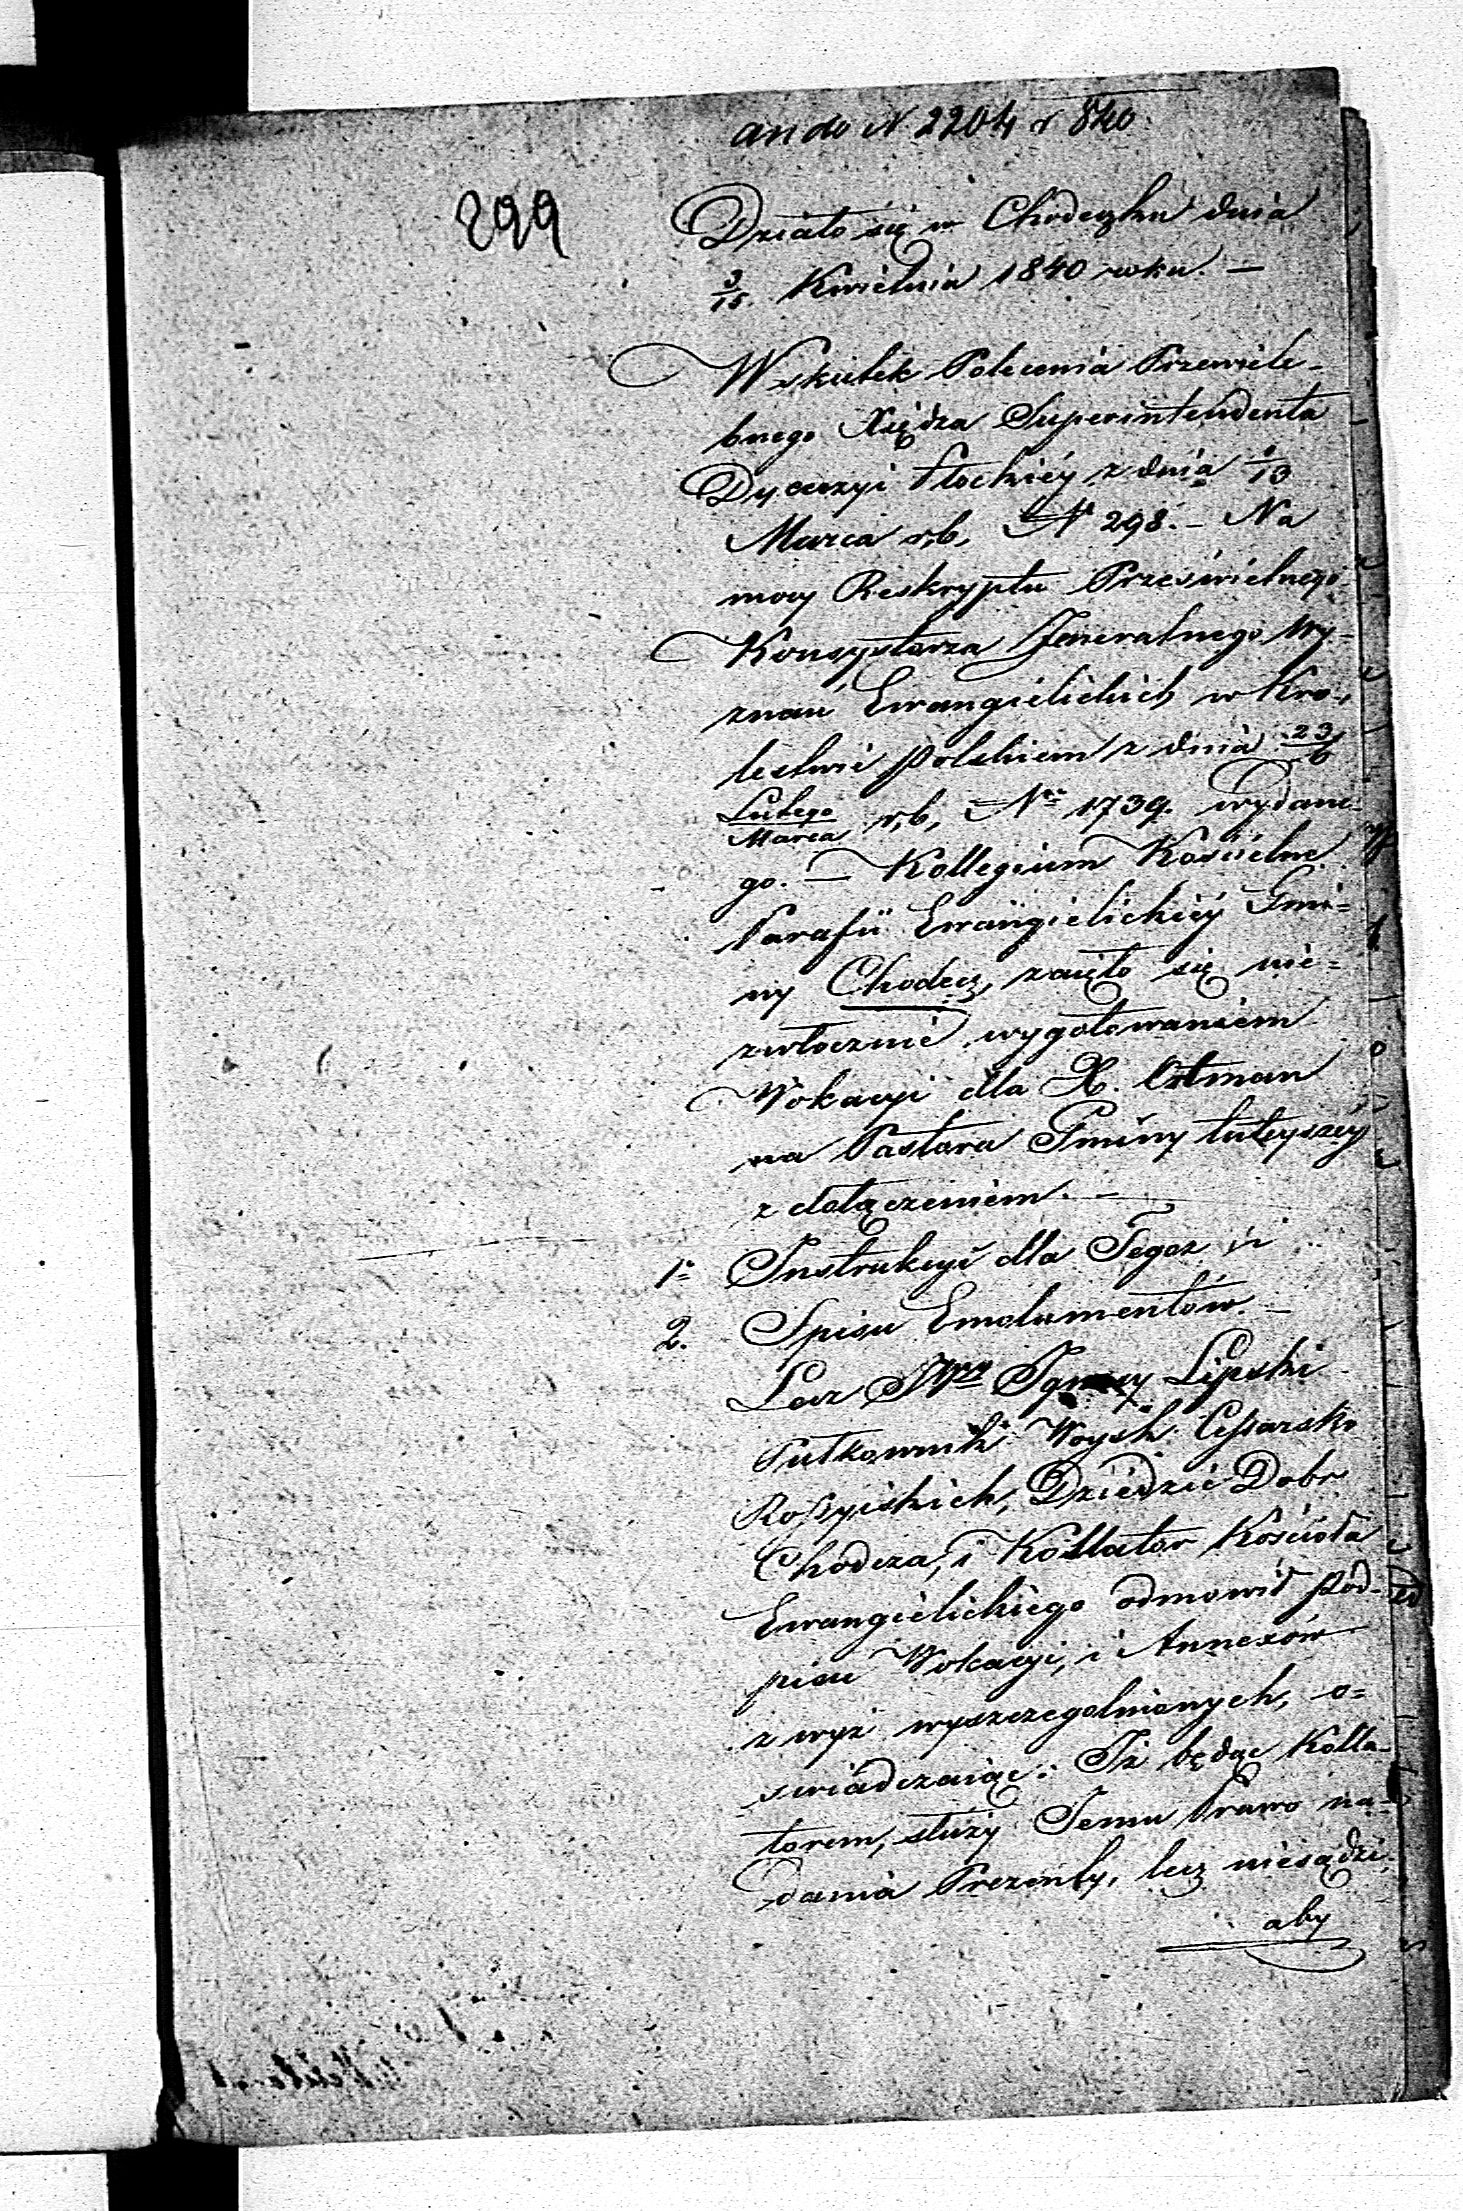 an do N 2204 r 840.
299
Działo się w Chodeczku dnia
3/15 Kwietnia 1840 roku. —
Wskutek Polecenia Przewiele-
bnego Xiędza Superintendenta
Dyecezyi Płockiéy z dnia 1/13
Marca r,b, N 298. — Na
mocy Reskryptu Prześwietnego
Konsystorza Jeneralnego Wy-
znań Ewangielickich w Kro-
lestwie polskiem z dnia 23/6
Lutego/Marca r,b, Nro 1739. wydane-
go. — Kollegium Kościelne
Parafii Ewangielickiéy Gmi-
ny Chodecz, zaięło się nie-
zwłocznie wygotowaniem
Wokacyi dla X. Ortman
na Pastora Gminy tuteyszéy
z dołączeniem. —
1. Instrukcyi dla Tegoż i
2. Spisu Emolumentów. —
Lecz JWny Ignacy Lipski
Pułkownik Woysk Cessarsko
Rossyiskich, Dziedzic Dobr
Chodcza, i Kollator Kościoła
Ewangielickiego odmowił pod-
pisu Wokacyi, i Annexów
z wyż wyszczegolnionych, o-
swiadczaiąc: Iż będąc Kolla-
torem, służy Jemu Prawo na-
dania Prezenty, lecz niesądzi
aby